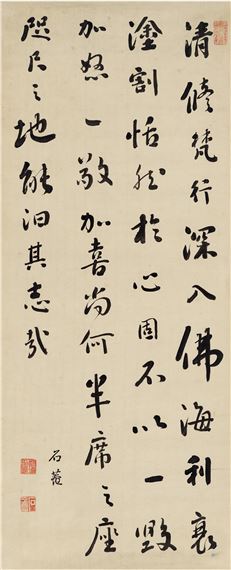 清修梵行深入佛海利衰
塗割恬然於心固不以一毀
加怒一敬加喜尚何半席之座
咫尺之地能汩其志哉
石菴